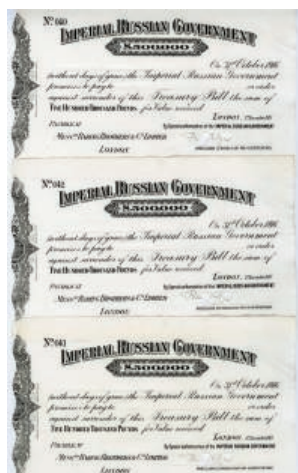 Nº 040
IMPERIAL RUSSIAN GOVERNMENT
£500000
On 31st October 1916
without days of grace the Imperial Russian Government
promises to pay to or order
against surrender of this Treasury Bill the sum of
FIVE HUNDRED THOUSAND POUNDS for Value received
LONDON,
PAYABLE AT
MESSRS BARING BROTHERS & CO LIMITED
LONDON
Nº 042
IMPERIAL RUSSIAN GOVERNMENT
£500000
On 31st October 1916
without days of grace the Imperial Russian Government
promises to pay to or order
against surrender of this Treasury Bill the sum of
FIVE HUNDRED THOUSAND POUNDS for Value received
LONDON,
PAYABLE AT
MESSRS BARING BROTHERS & CO LIMITED
LONDON
Nº 043
IMPERIAL RUSSIAN GOVERNMENT
£500000
On 31st October 1916
without days of grace the Imperial Russian Government
promises to pay to or order
against surrender of this Treasury Bill the sum of
FIVE HUNDRED THOUSAND POUNDS for Value received
LONDON
PAYABLE AT
MESSRS BARING BROTHERS & CO LIMITED
LONDON